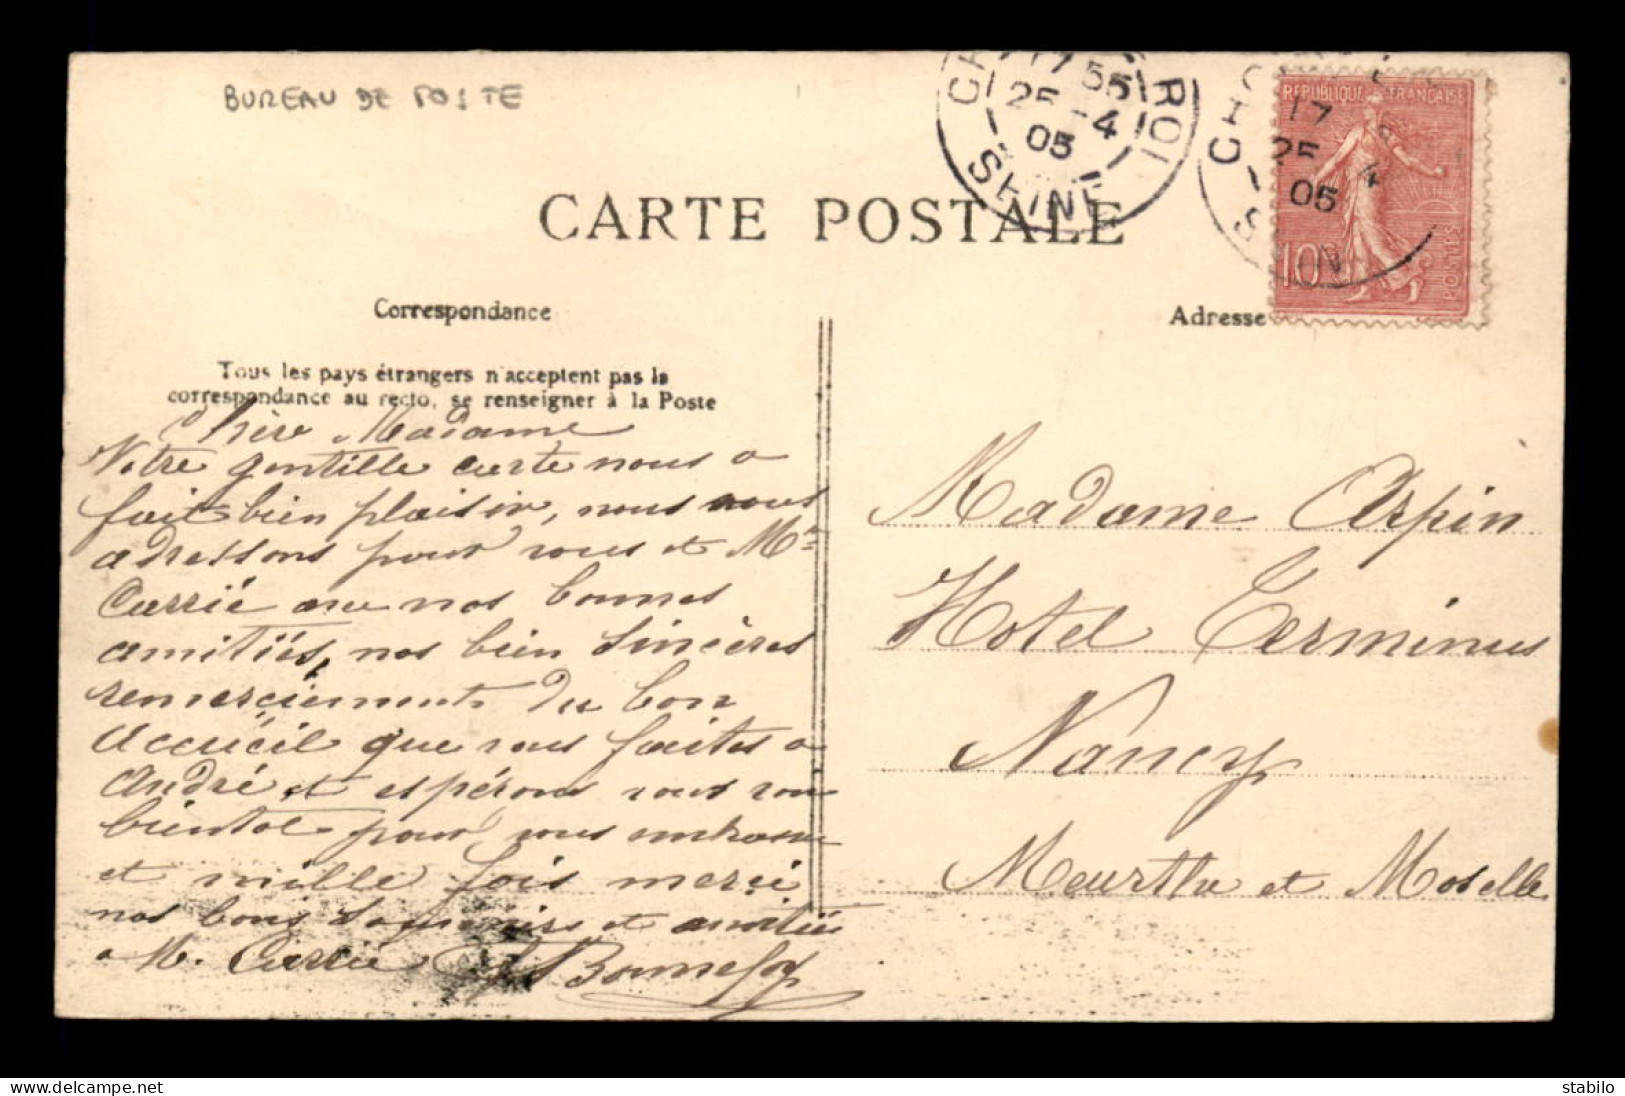 BUREAU DE POSTE
17 55
25 -4
05
CH ROI
SEINE
REPUBLIQUE FRANÇAISE
10
POSTES
17
25 4
05
CARTE POSTALE
Correspondance
Tous les pays étrangers n'acceptent pas la
correspondance au recto, se renseigner à la Poste
Chère Madame
Votre gentille carte nous a
fait bien plaisir, nous vous
adressons pour vous et Mr
Carrié nos bonnes
amitiés, nos bien sincères
remerciements du bon
accueil que vous faites a
André et espérons vous
bientot pour vous embrasser
et mille fois merci
nos bons souvenirs et amitiés
a M. Carrié Bonnefoy
Adresse
Madame Arpin
Hotel Terminus
Nancy
Meurthe et Moselle
stabilo